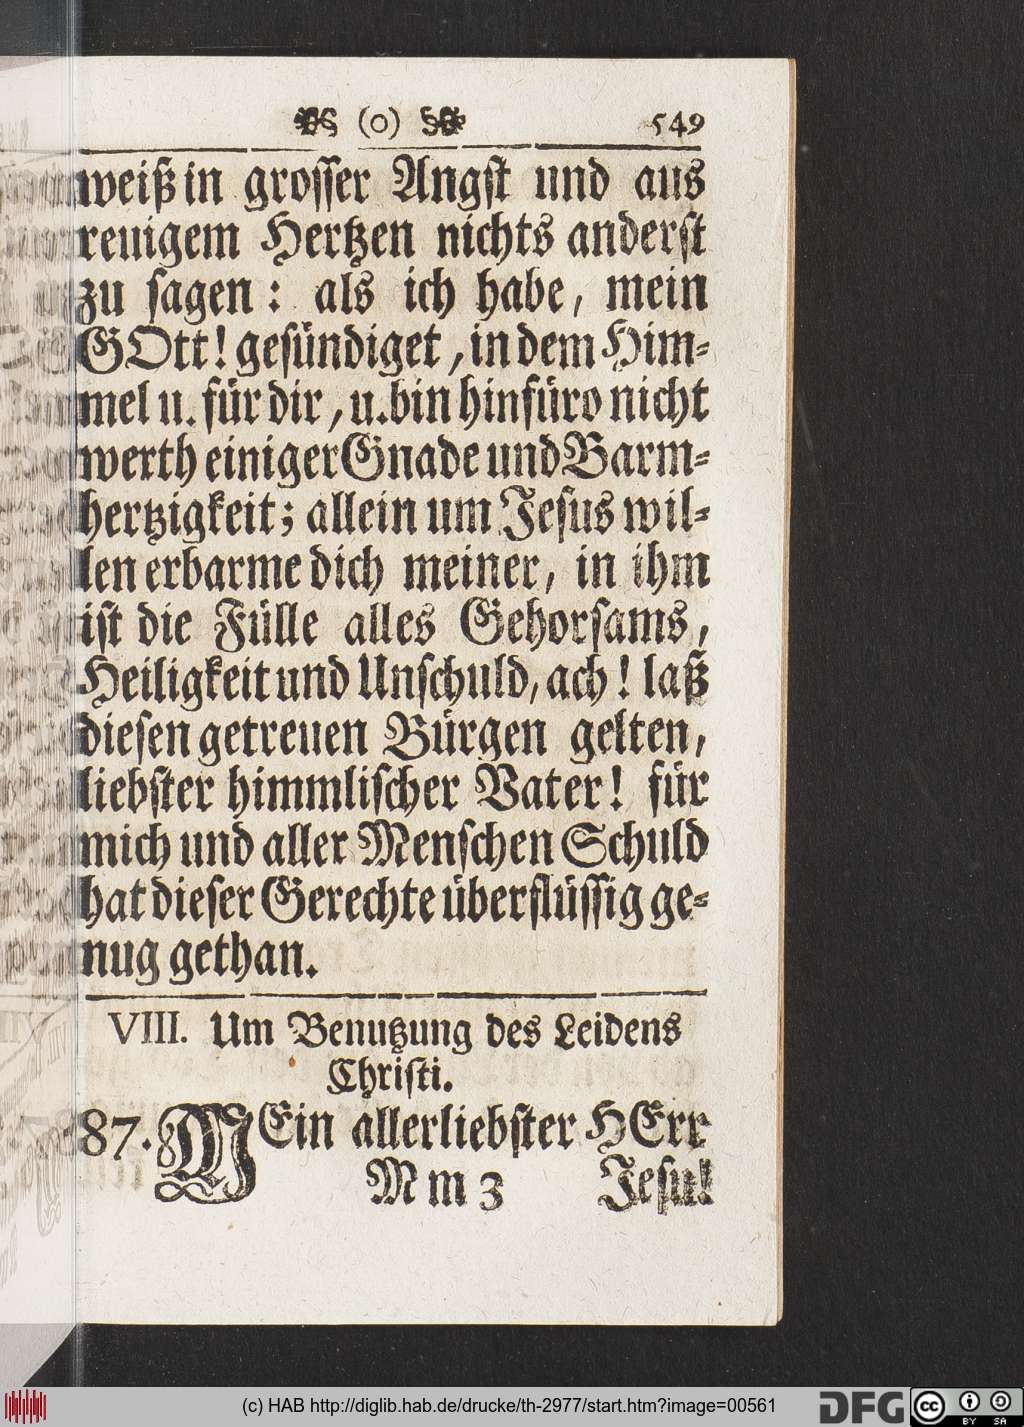 (o) 549
weiß in grosser Angst und aus
reuigem Hertzen nichts anderst
zu sagen: als ich habe, mein
GOtt! gesündiget, in dem Him-
mel u. für dir, u. bin hinfüro nicht
werth einiger Gnade und Barm-
hertzigkeit; allein um Jesus wil-
len erbarme dich meiner, in ihm
ist die Fülle alles Gehorsams,
Heiligkeit und Unschuld, ach! laß
diesen getreuen Bürgen gelten,
liebster himmlischer Vater! für
mich und aller Menschen Schuld
hat dieser Gerechte überflüssig ge-
nug gethan.
VIII. Um Benutzung des Leidens
Christi.
87. MEin allerliebster HErr
Mm 3 Jesu!
(c) HAB http://diglib.hab.de/drucke/th-2977/start.htm?image=00561
DFG cc BY SA